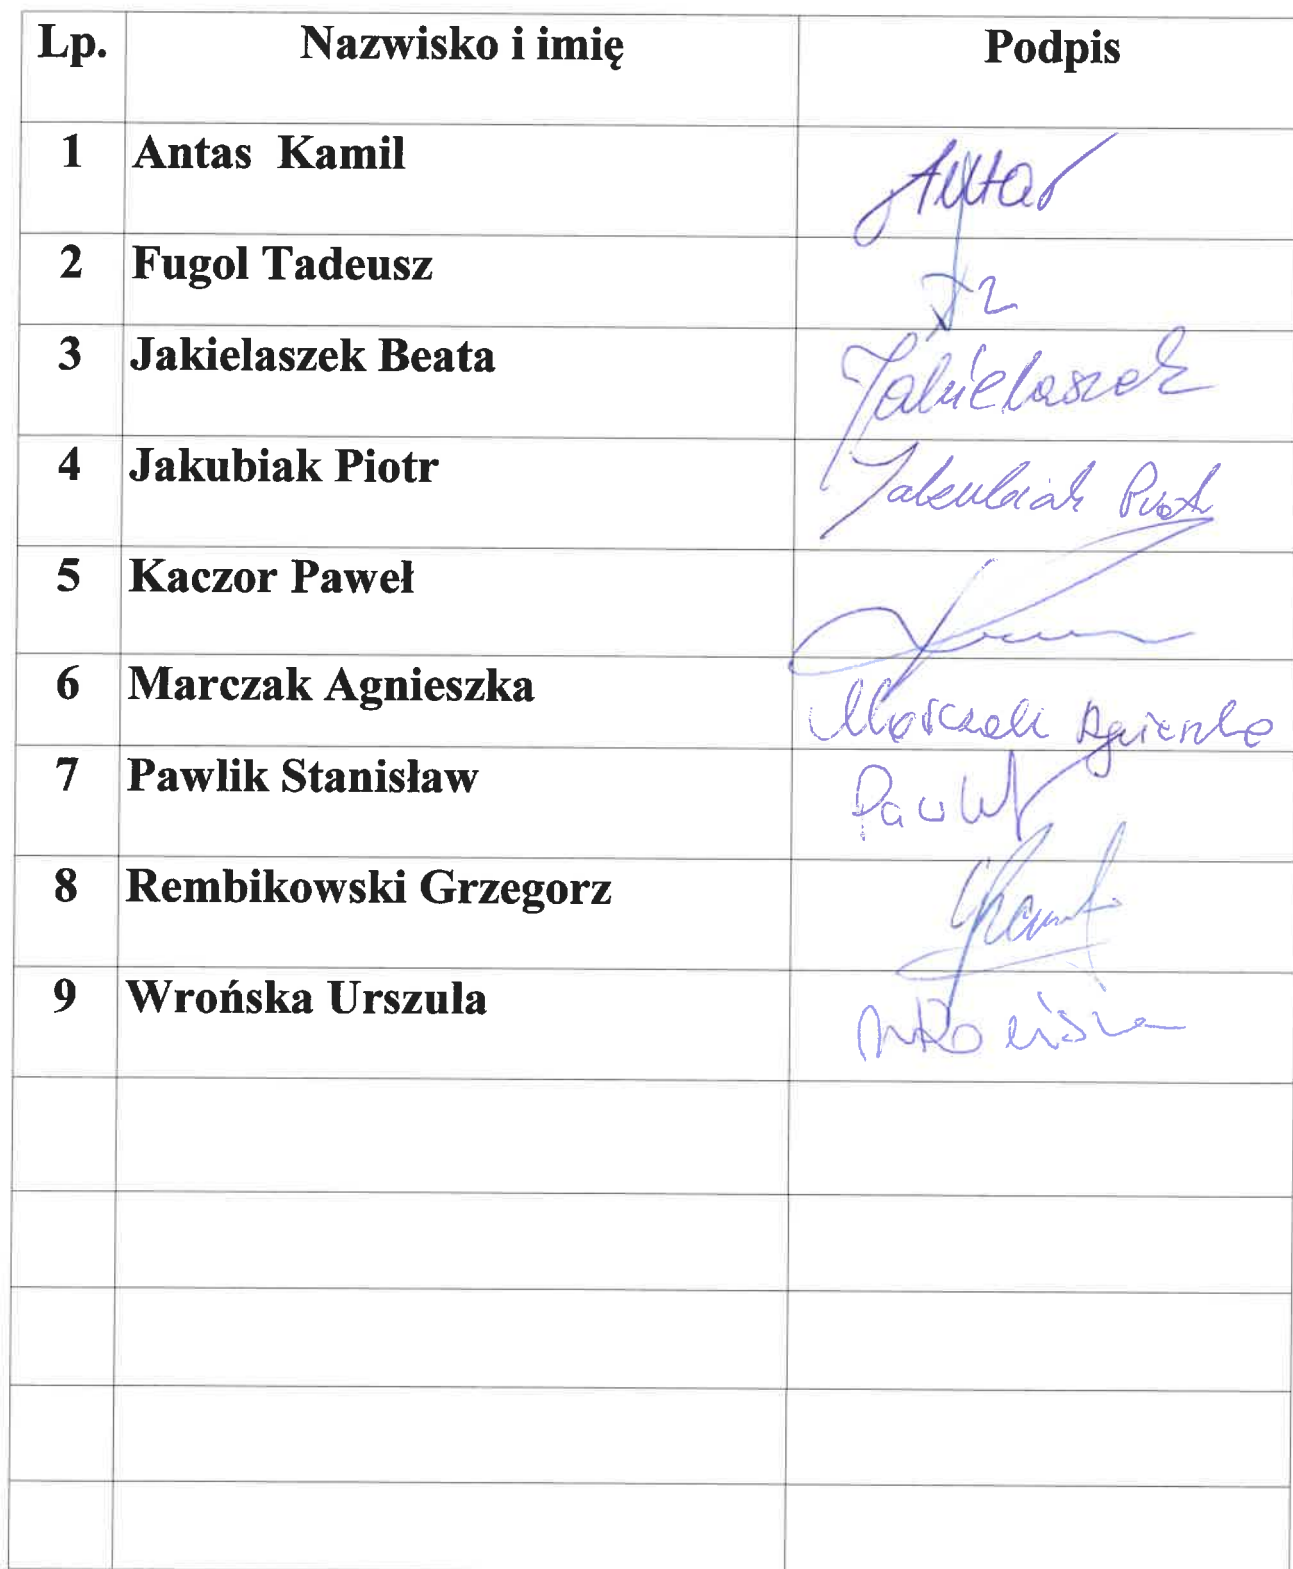 Lp. Nazwisko i imię Podpis
1 Antas Kamil Antas
2 Fugol Tadeusz
3 Jakielaszek Beata Jakielaszek
4 Jakubiak Piotr Jakubiak Piotr
5 Kaczor Paweł
6 Marczak Agnieszka Marczak Agnieszka
7 Pawlik Stanisław Pawlik
8 Rembikowski Grzegorz
9 Wrońska Urszula Wrońska